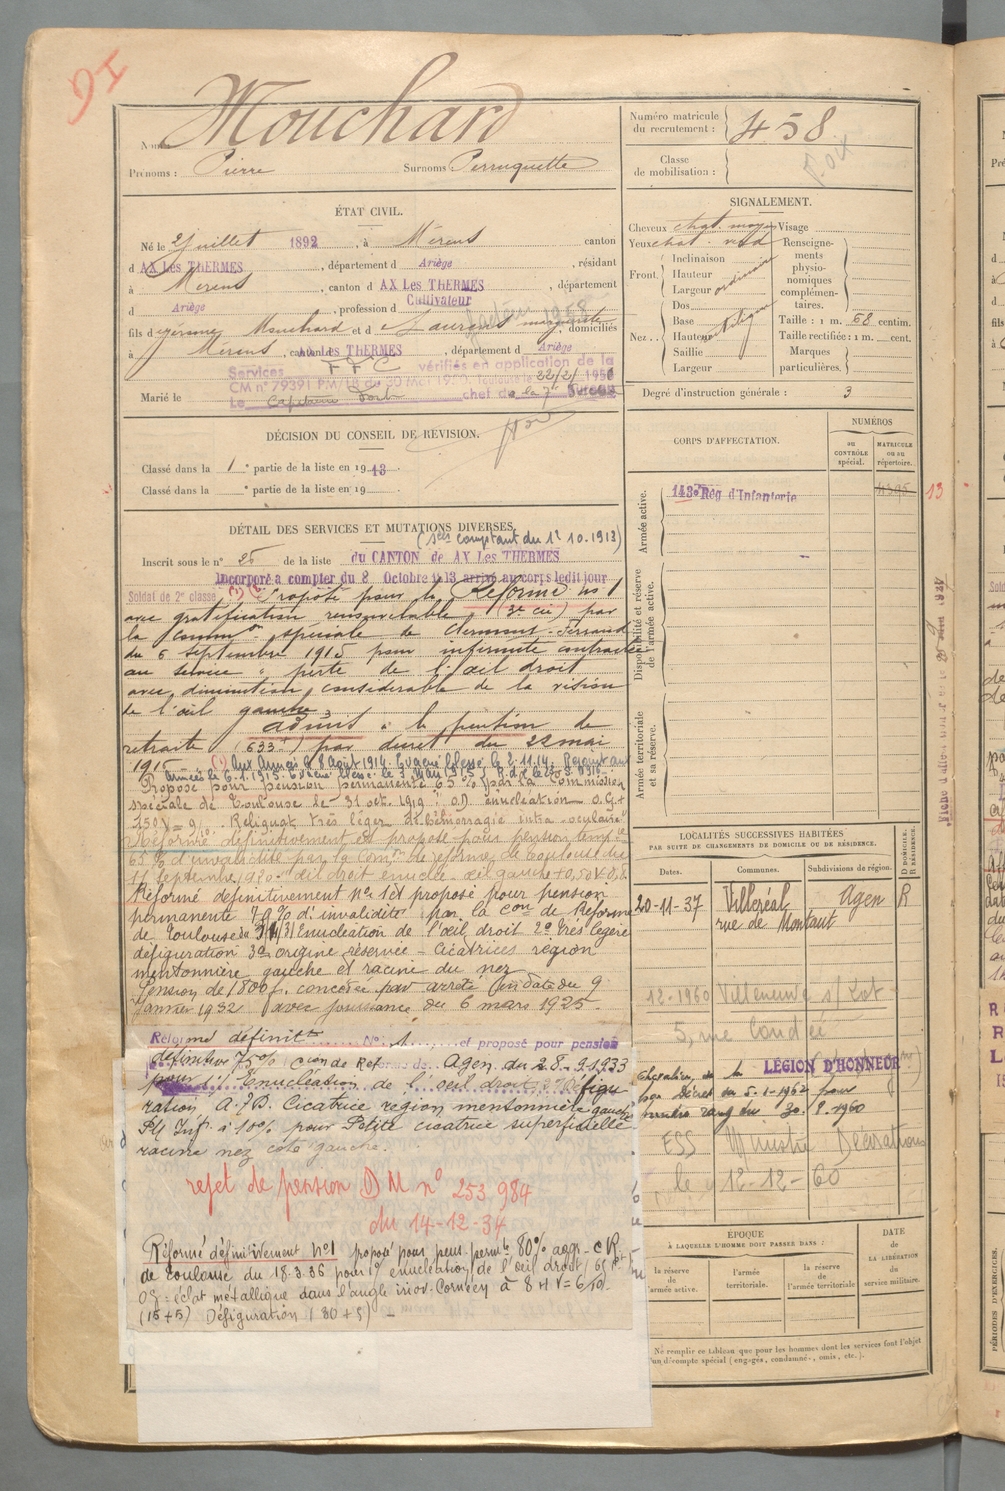 91
Nom : Mouchard
Prénoms : Pierre Surnoms : Perruquette
Numéro matricule du recrutement : 458
Classe de mobilisation :
Foix
ÉTAT CIVIL.
Né le 2 juillet 1892, à Mérens canton
d AX Les THERMES, département d Ariège, résidant
à Mérens, canton d AX Les THERMES, département
d Ariège, profession d Cultivateur
fils d Mouchard et d Laurens marguerite, domiciliés
à Mérens, canton d AX Les THERMES, département d Ariège
Services FFC vérifiés en application de la
CM n° 79391 PM/1B du 30 Mai 1950, Toulouse le 22/2/1951
Marié le
Le Capitaine chef de la 7e Bureau
SIGNALEMENT.
Cheveux chat. moy. Visage
Yeux chat. verd
Front. Inclinaison
Hauteur
Largeur ordinaire
Nez... Dos
Base
Hauteur
Saillie
Largeur
Renseignements physionomiques complémentaires.
Taille : 1 m. 68 centim.
Taille rectifiée : 1 m. cent.
Marques particulières.
Degré d'instruction générale : 3
DÉCISION DU CONSEIL DE RÉVISION.
Classé dans la 1e partie de la liste en 1913.
Classé dans la e partie de la liste en 19
DÉTAIL DES SERVICES ET MUTATIONS DIVERSES.
(Sces comptant du 1r 10.1913)
Inscrit sous le n° 25 de la liste du CANTON de AX Les THERMES
Incorporé à compter du 8 Octobre 1913 arrivé au corps ledit jour
Soldat de 2e classe Proposé pour la Réforme n° 1
avec gratification renouvelable (3e cie) par
la Common spéciale de Clermont-Ferrand
du 6 septembre 1915 pour infirmité contractée
au service " perte de l'œil droit
avec diminution considérable de la vision
de l'œil gauche "
admis à la pension de
retraite (633f) par décret du 22 mai
1915 Aux Armées le 8 Août 1914. Evacué blessé le 2.11.14. Rejoint aux
Armées le 6.1.1915. Evacué blessé le 3 Mai 1915.
Proposé pour pension permanente 65 % par la Commission
spéciale de Toulouse le 31 oct. 1919 : OD énucléation O.G.
Reliquat très léger d'hémorragie intra oculaire
Réformé définitivement et proposé pour pension temp
65 % d'invalidité par la Comon de réforme de Toulouse du
11 septembre 1920. œil droit énuclée. œil gauche
Réformé définitivement n° 1 et proposé pour pension
permanente 70 % d'invalidité par la Con de Réforme
de Toulouse du Enucléation de l'œil droit 2° très légère
défiguration 3° origine réservée - cicatrices région
mentonnière gauche et racine du nez
Pension de 1800 f. concédée par arrêté en date du 9
janvier 1932 avec jouissance du 6 mars 1925
Réformé définitt N° 1 et proposé pour pension
définitive 75% Cion de Réforme de Agen du 28.9.1933
pour 1° Enucléation de l'œil droit 2° Défigu
ration A.P.B. Cicatrice région mentonnière gauche
Inf. à 10% pour Petite cicatrice superficielle
racine nez côté gauche.
rejet de pension DM n° 253 984
du 14-12-34
Réformé définitivement n°1 proposé pour pens. permte 80% aggr. CR
de Toulouse du 18.3.36 pour 1° énucléation de l'œil droit
OG : éclat métallique dans l'angle Cornéen à 8 H V = 6/10
(15+5) Défiguration
CORPS D'AFFECTATION.
NUMÉROS
au CONTRÔLE spécial.
MATRICULE ou au répertoire.
Armée active.
143e Rég d'Infanterie
4395
13
Disponibilité et réserve de l'armée active.
Armée territoriale et sa réserve.
LOCALITÉS SUCCESSIVES HABITÉES
PAR SUITE DE CHANGEMENTS DE DOMICILE OU DE RÉSIDENCE.
Dates. Communes. Subdivisions de région. D DOMICILE. R RÉSIDENCE.
20-11-37 Villeréal Agen R
rue de Montaut
12-1960 Villeneuve s/Lot
5, rue Condée
Chevalier de la LÉGION D'HONNEUR
par Décret du 5-1-1962 pour
prendre rang du 30.8.1960
ESS Ministre Décorations
le 12-12-60
ÉPOQUE
À LAQUELLE L'HOMME DOIT PASSER DANS :
la réserve de l'armée active.
l'armée territoriale.
la réserve de l'armée territoriale
DATE de LA LIBÉRATION du service militaire.
Ne remplir ce tableau que pour les hommes dont les services font l'objet
d'un décompte spécial (engagés, condamnés, omis, etc.).